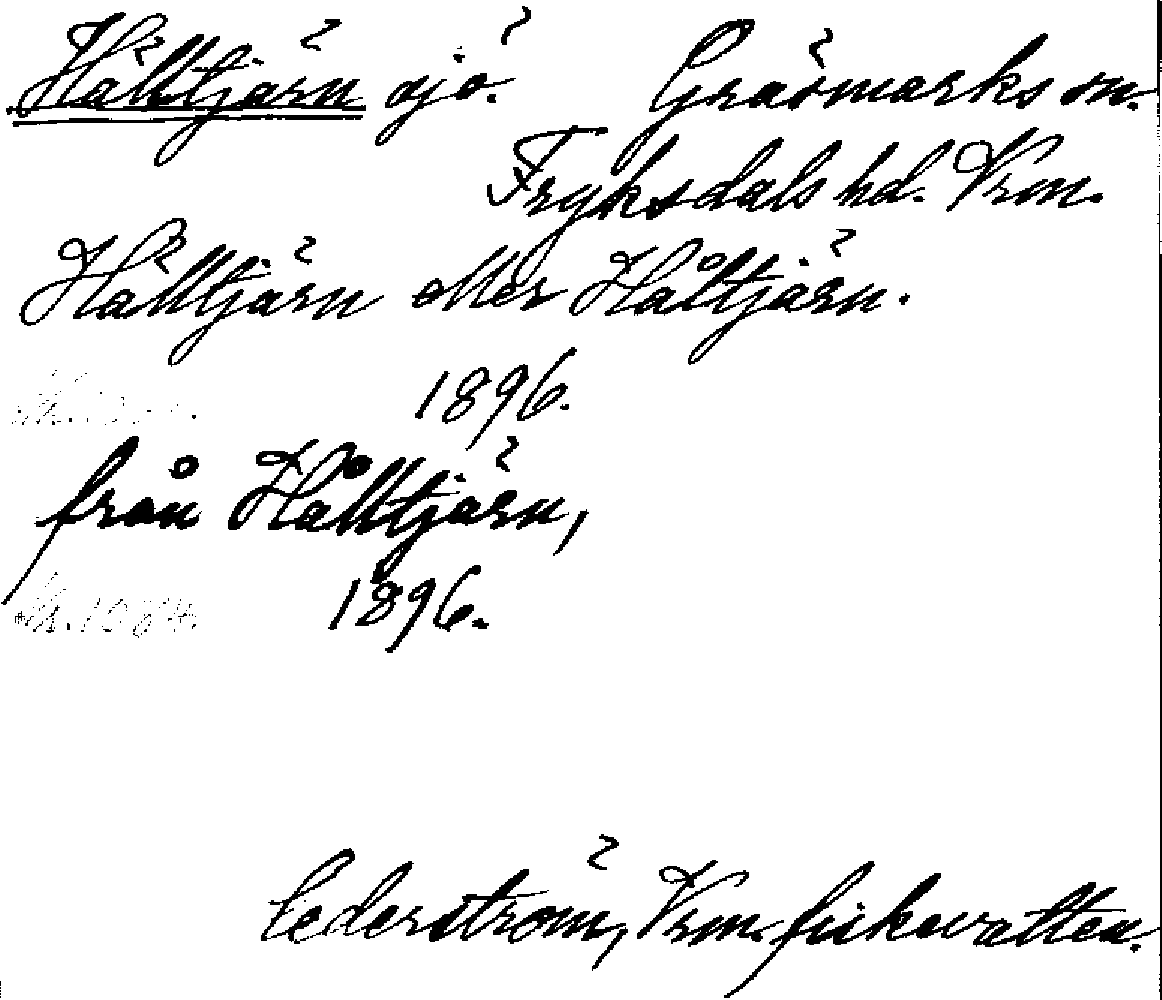 Hälltjärn sjö. Gräsmarks sn.
Fryksdals hd. Vrm.
Hälltjärn eller Håltjärn.
1896.
från Hålltjärn,
1896.
Cederström, Vrm. fiskevatten.